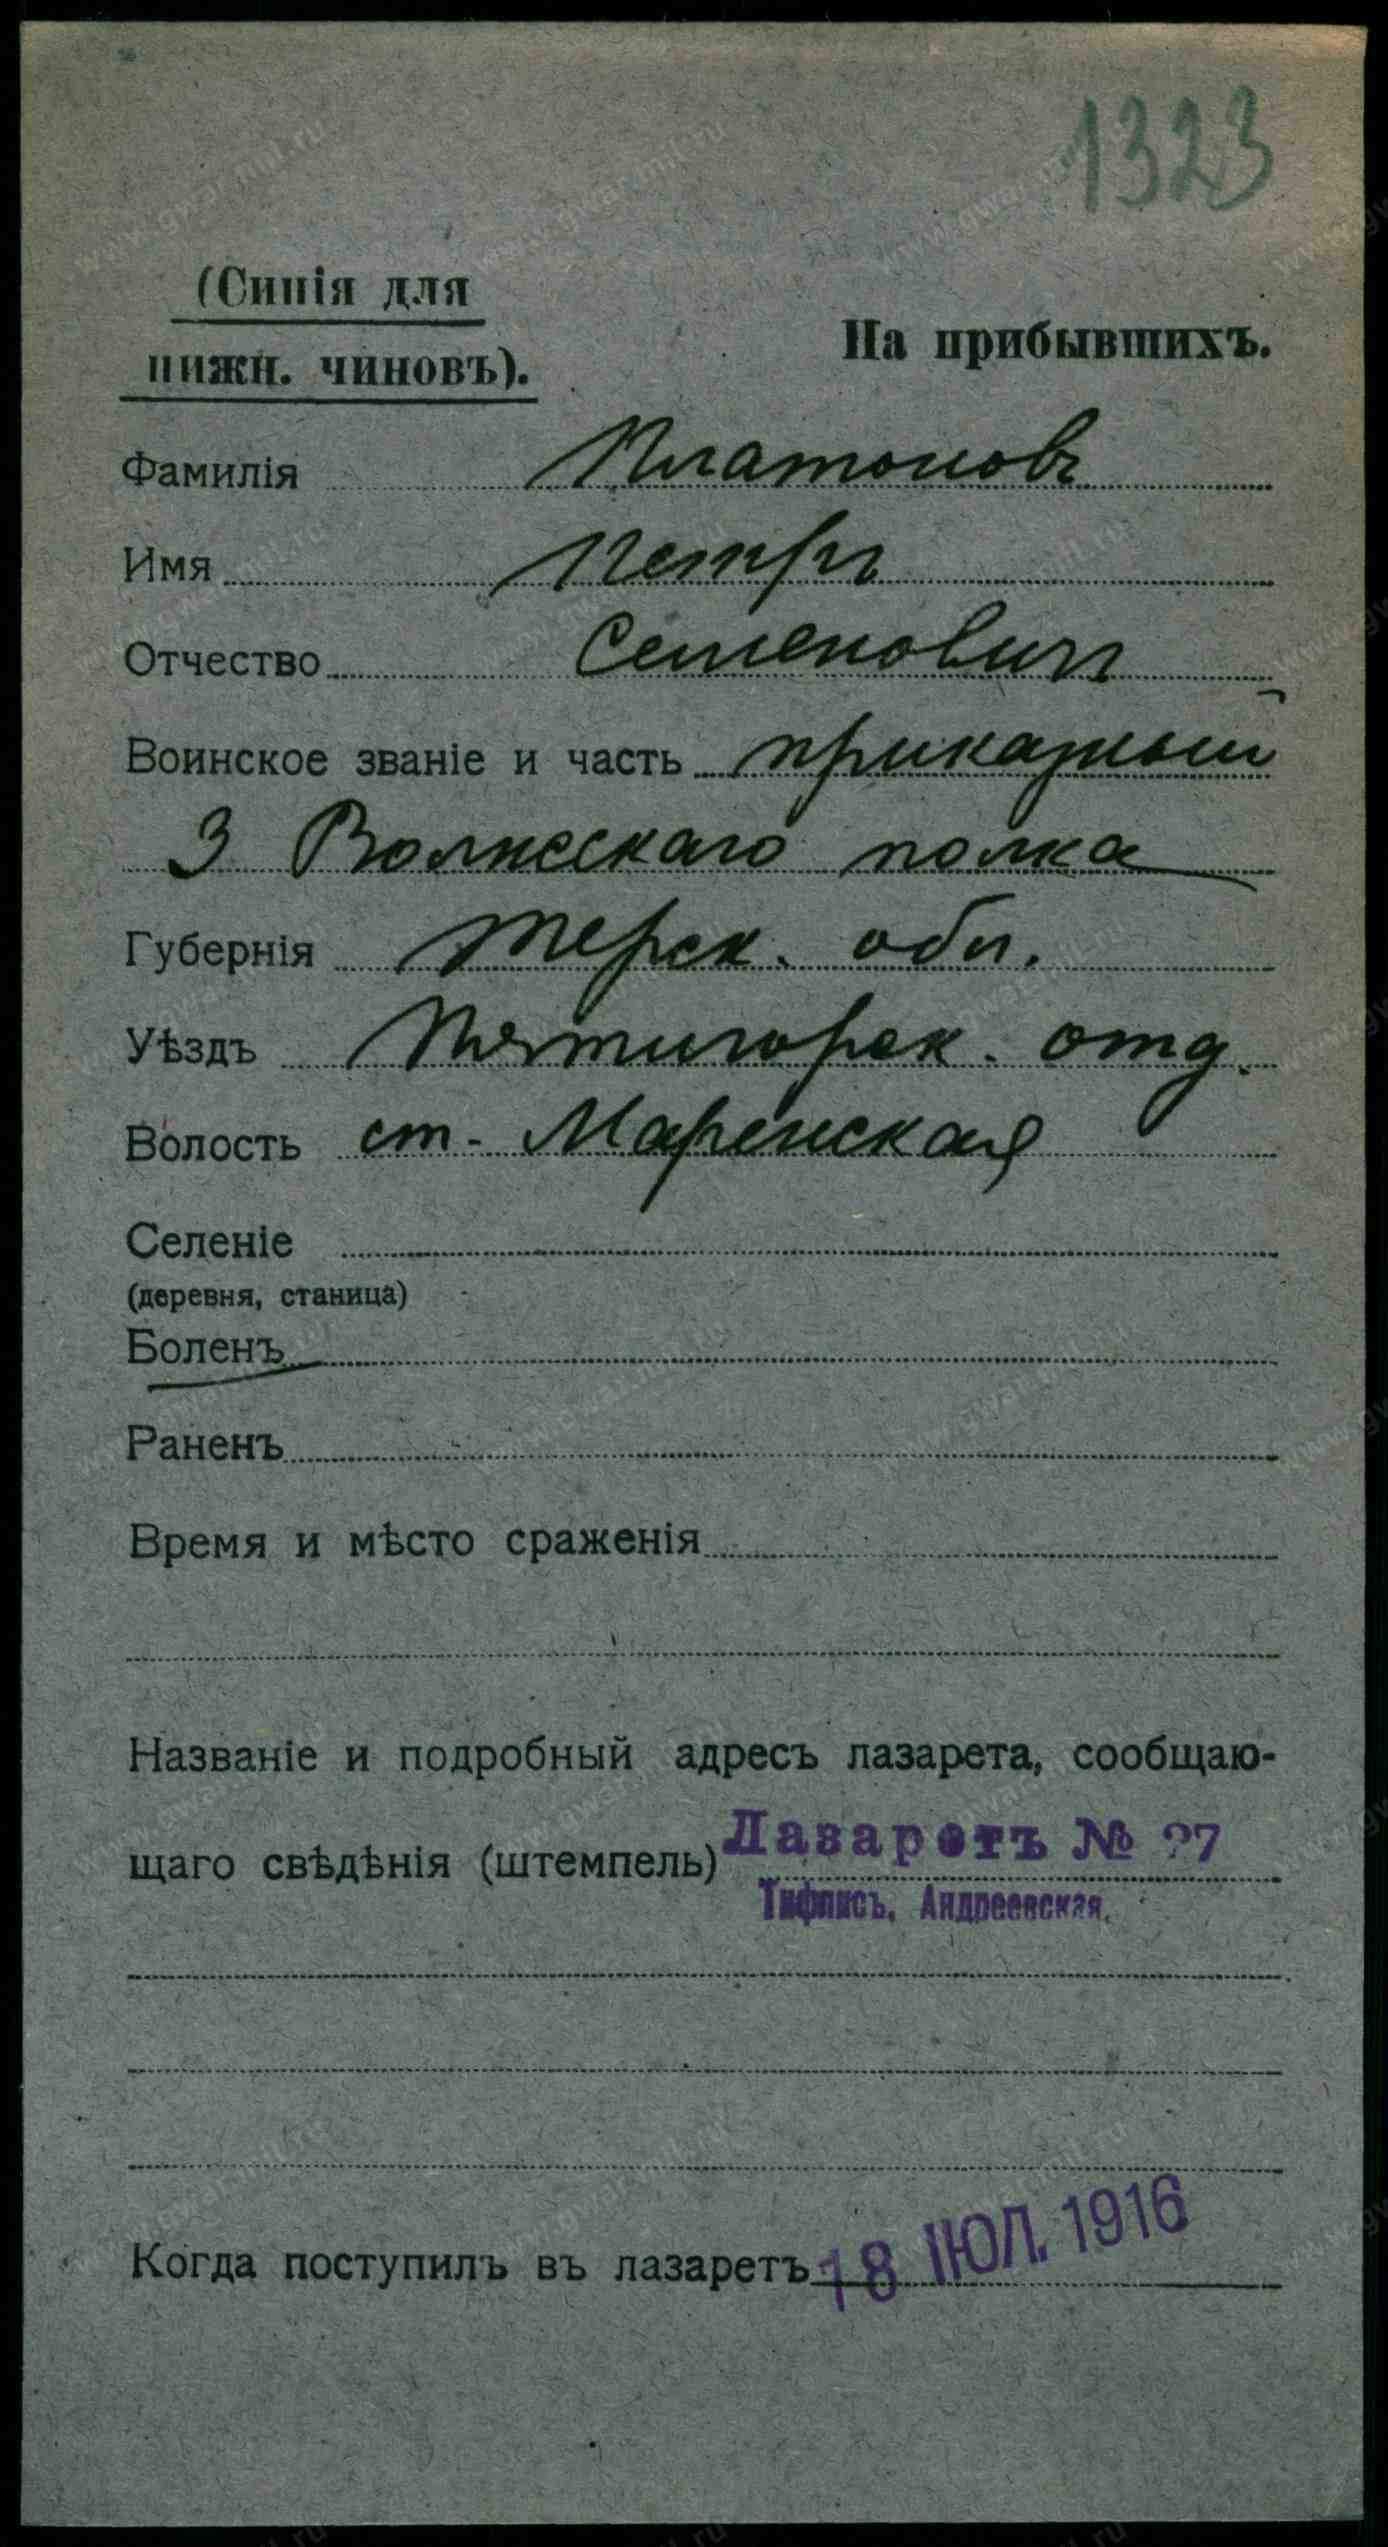 1323
(Синія для
нижн. чиновъ).
На прибывшихъ.
Фамилія Платоновъ
Имя Петръ
Отчество Семеновичъ
Воинское званіе и часть приказный
3 Волжскаго полка
Губернія Терск. обл.
Уѣздъ Пятигорск. отд.
Волость ст. Маренская
Селеніе
(деревня, станица)
Боленъ
Раненъ
Время и мѣсто сраженія
Названіе и подробный адресъ лазарета, сообщаю-
щаго свѣдѣнія (штемпель) Лазаретъ №
Тифлисъ, Андреевская.
Когда поступилъ въ лазаретъ 18 ІЮЛ. 1916